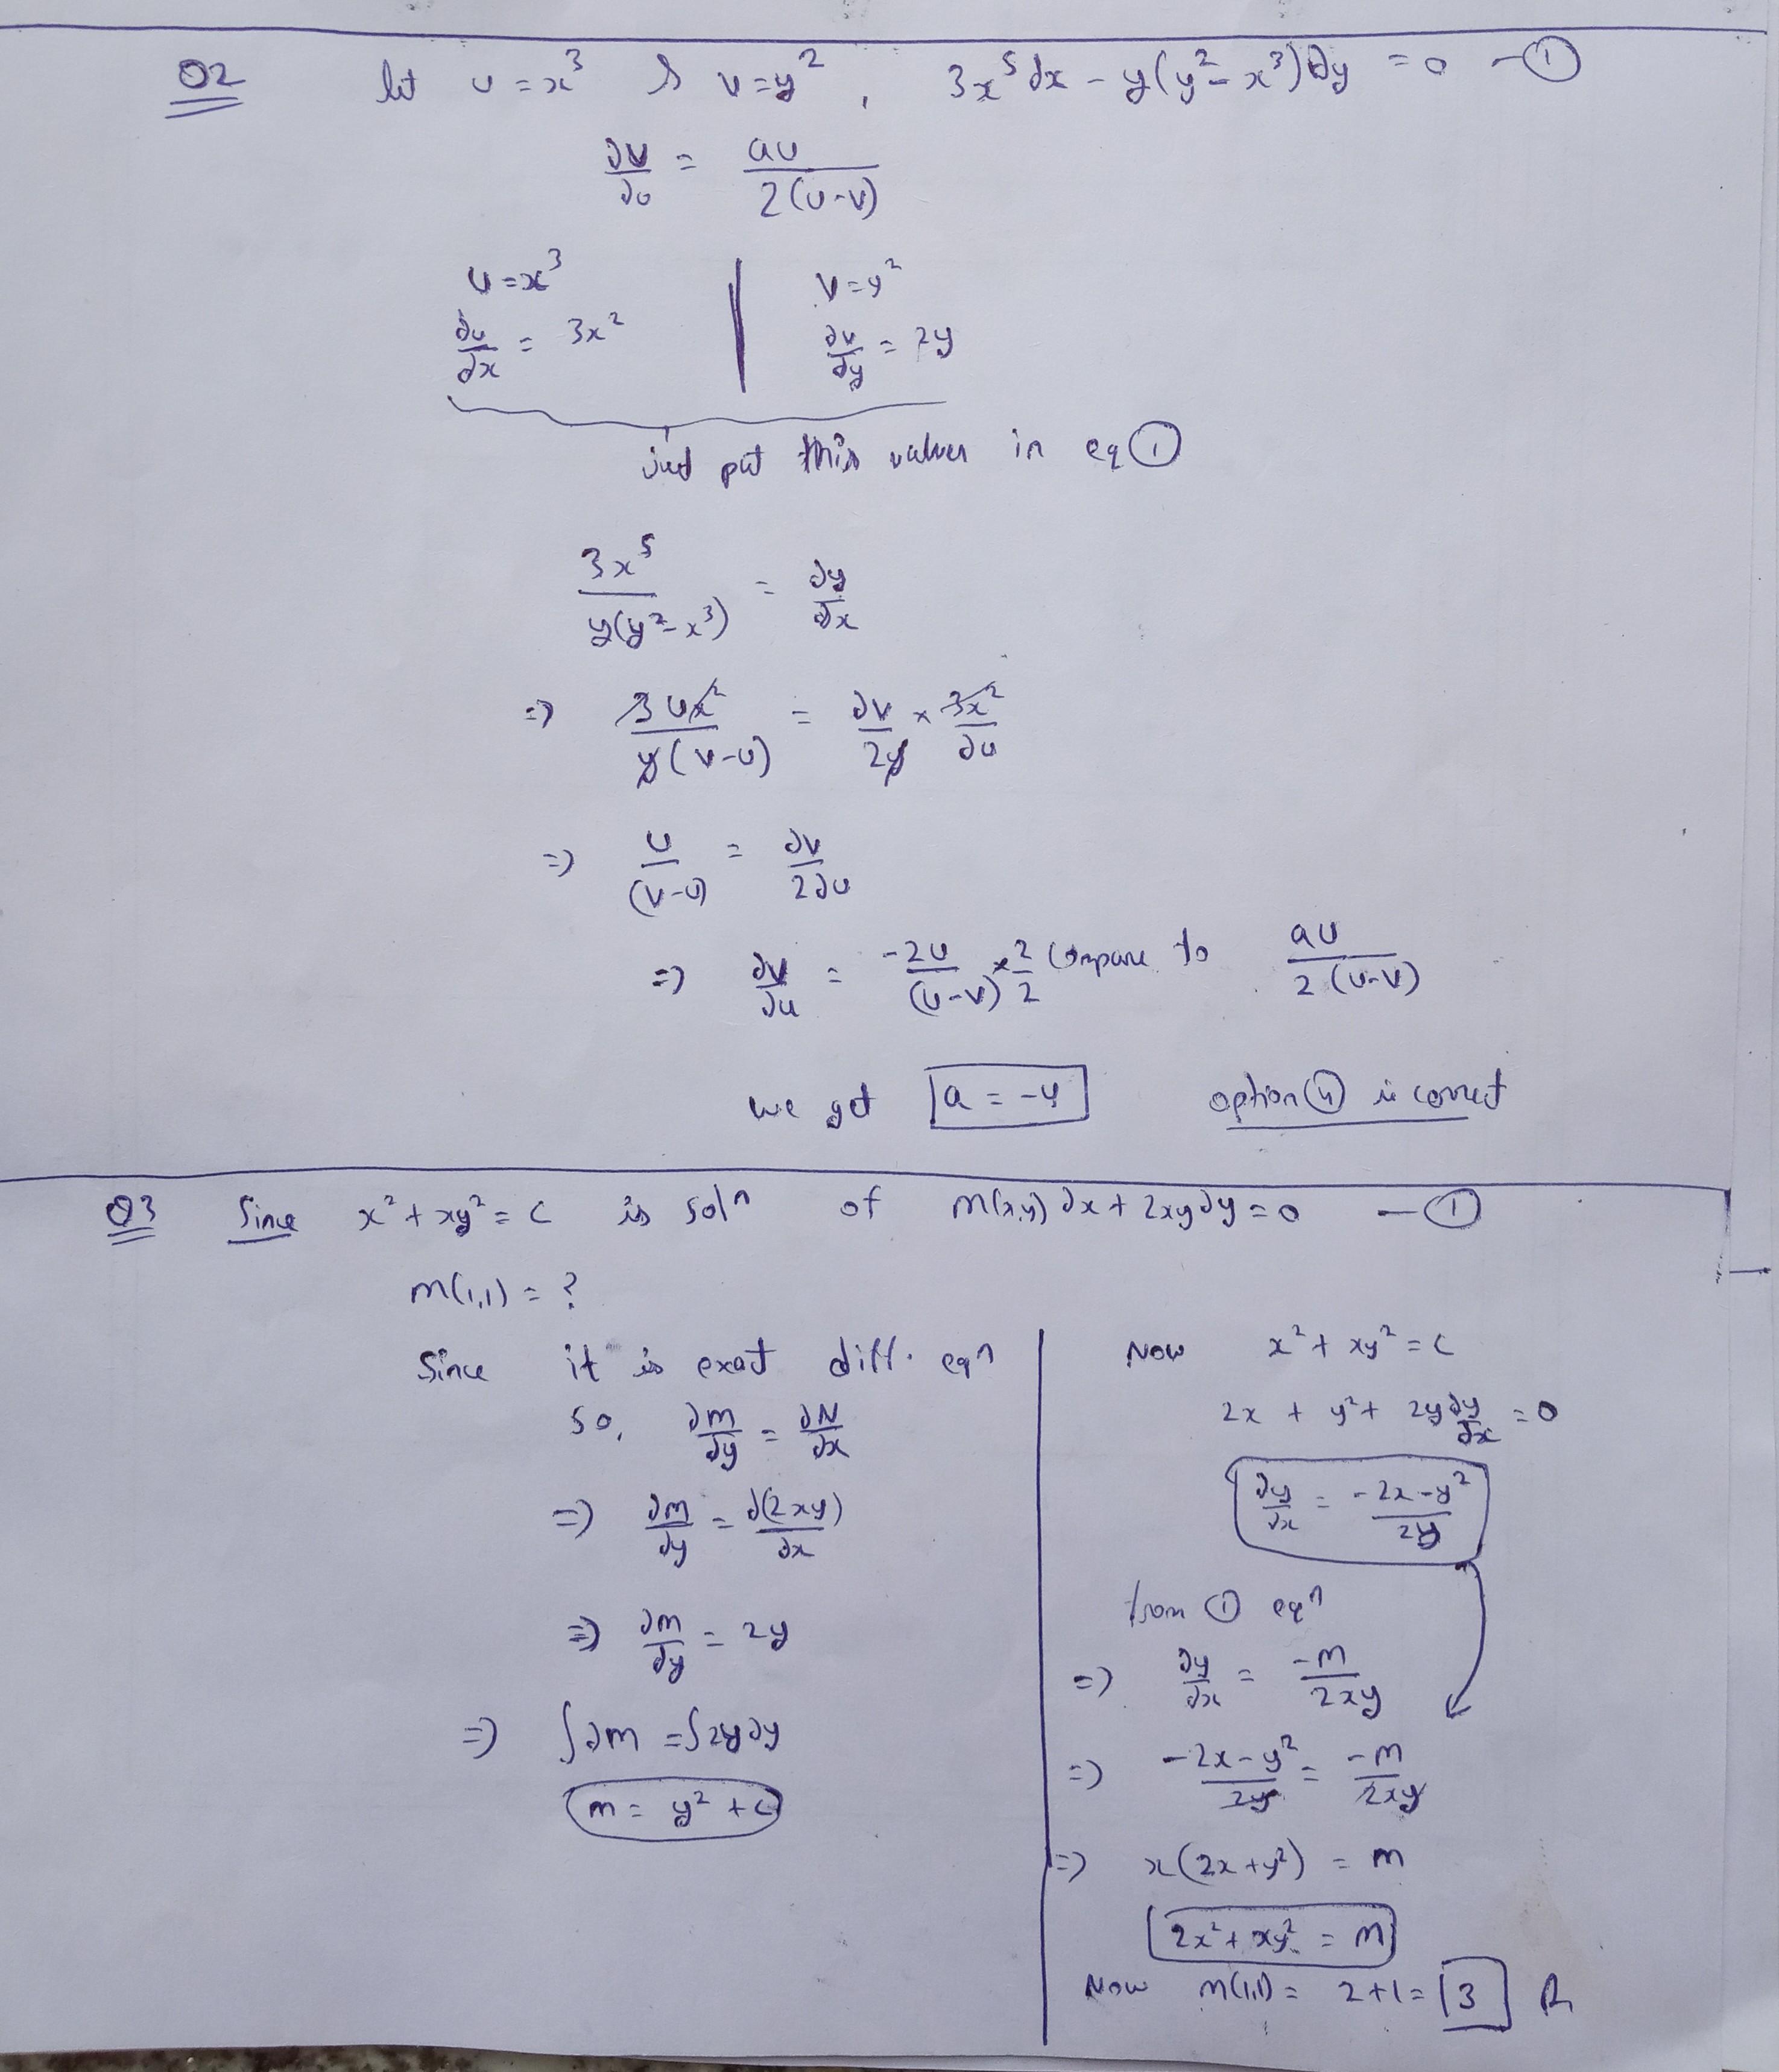 Q2 let u = x³ & v = y², 3x⁵dx - y(y² - x³)dy = 0 - ①
∂v/∂u = au/2(u-v)
u = x³ | v = y²
∂u/∂x = 3x² | ∂v/∂y = 2y
just put this values in eq ①
3x⁵/y(y² - x³) = ∂y/∂x
=> 3ux²/y(v-u) = ∂v/2y × 3x²/∂u
=> u/(v-u) = ∂v/2∂u
=> ∂v/∂u = -2u/(u-v) × 2/2 compare to au/2(u-v)
we get a = -4 option ④ is correct
Q3 Since x² + xy² = c is solⁿ of m(x,y) ∂x + 2xy∂y = 0 - ①
m(1,1) = ?
Since it is exact diff. eqⁿ
so, ∂m/∂y = ∂N/∂x
=> ∂m/∂y = ∂(2xy)/∂x
=> ∂m/∂y = 2y
=> ∫∂m = ∫2y∂y
m = y² + c
Now x² + xy² = c
2x + y² + 2y ∂y/∂x = 0
∂y/∂x = -2x-y²/2y
from ① eqⁿ
=> ∂y/∂x = -m/2xy
=> -2x-y²/2y = -m/2xy
=> x(2x+y²) = m
2x² + xy² = m
Now m(1,1) = 2+1 = 3